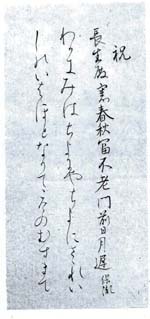 祝
長生殿裏春秋富不老門前日月遲 保胤
わかきみはちよにやちよにさゝれい
しのいはほとなりてこけのむすまて